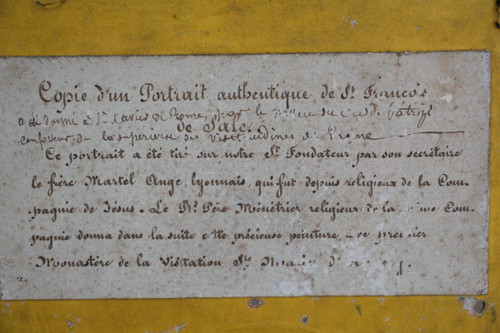 Copie d'un Portrait authentique de St. François
a été donné à St. Xavier de Rome, le du Card. Patrizi
confesseur de la supérieure des Visitandines de Rome
de Sales
Ce portrait a été tiré sur notre St. Fondateur par son secrétaire
le frère Martel Ange, lyonnais, qui fut depuis religieux de la Com-
pagnie de Jésus. Le Rd. Père Ménétrier religieux de la même Com-
pagnie donna dans la suite cette précieuse peinture à ce premier
Monastère de la Visitation Ste Marie